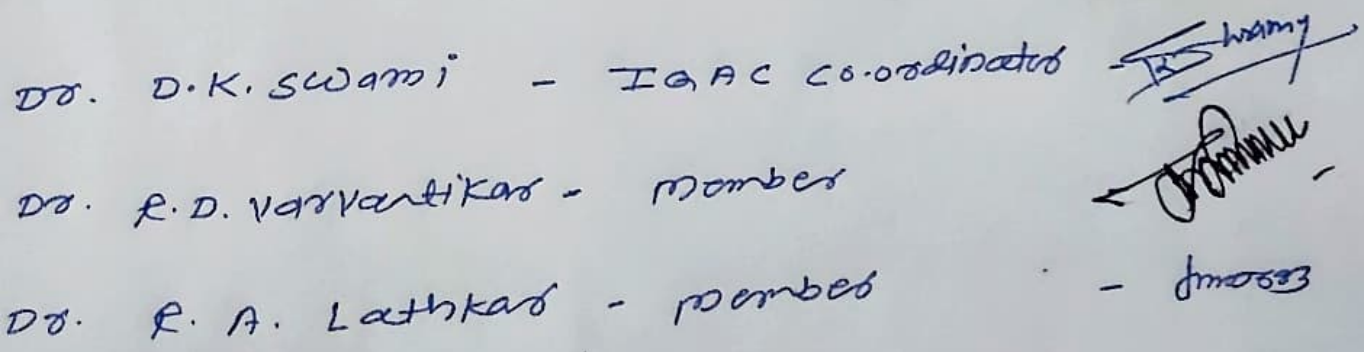 Dr. D.K. Swami - IQAC Co.ordinator - Swamy
Dr. R.D. Varvantikar - member -
Dr. R. A. Lathkar - member -